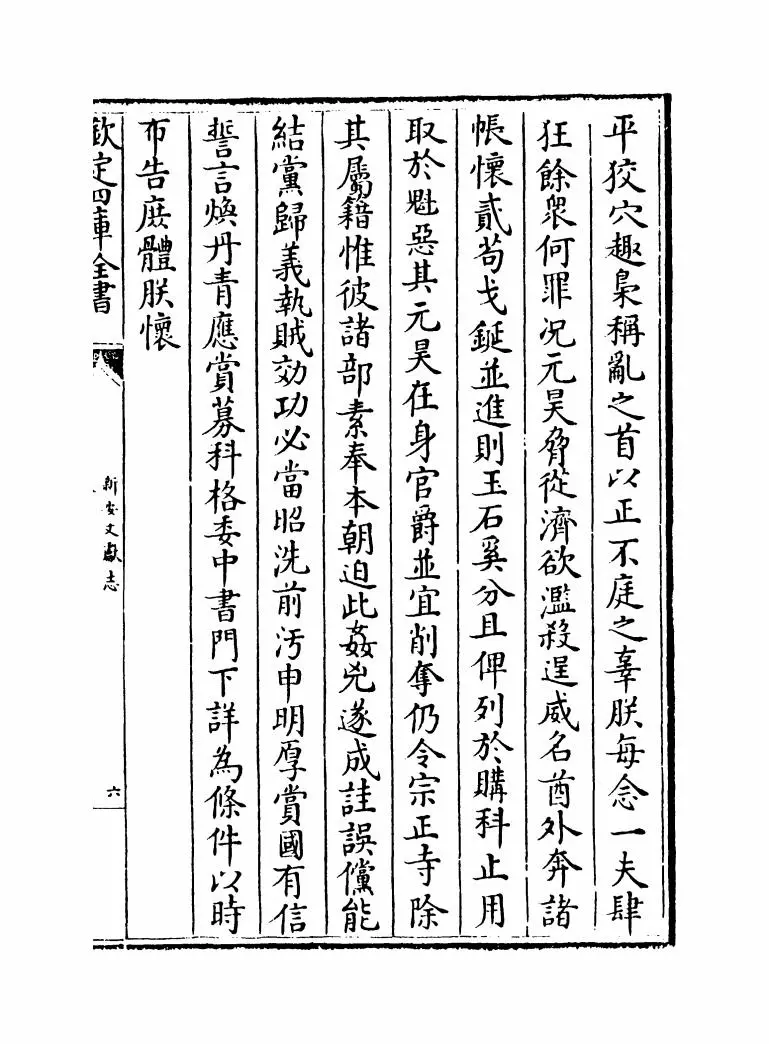 平狡穴趣梟稱亂之首以正不庭之辜朕每念一夫肆
狂餘衆何罪况元昊脅從濟欲濫殺逞威名酋外奔諸
帳懷貳茍戈鋋並進則玉石奚分且俾列於購科止用
取於魁惡其元昊在身官爵並宜削奪仍令宗正寺除
其屬籍惟彼諸部素奉本朝迫此姦兇遂成詿誤儻能
結黨歸義執賊効功必當昭洗前汚申明厚賞國有信
誓言煥丹青應賞募科格委中書門下詳為條件以時
布告庶體朕懷
欽定四庫全書
新安文獻志
六